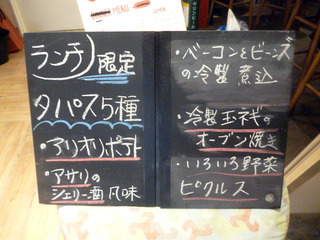 MENU
ランチ限定
タパス5種
・アリオリポテト
・アサリの
シェリー酒風味
・ベーコンとビーンズ
の冷製煮込
・冷製玉ネギの
オーブン焼き
・いろいろ野菜
ピクルス